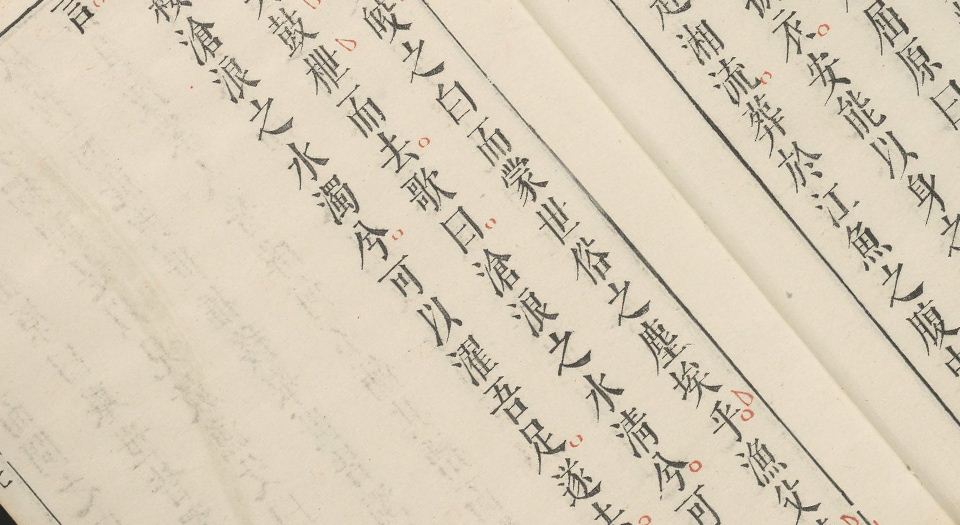 屈原曰
衣安能以身之
湘流葬於江魚之腹中
之白而蒙世俗之塵埃乎漁父
鼓枻而去歌曰滄浪之水清兮可
滄浪之水濁兮可以濯吾足遂去
言